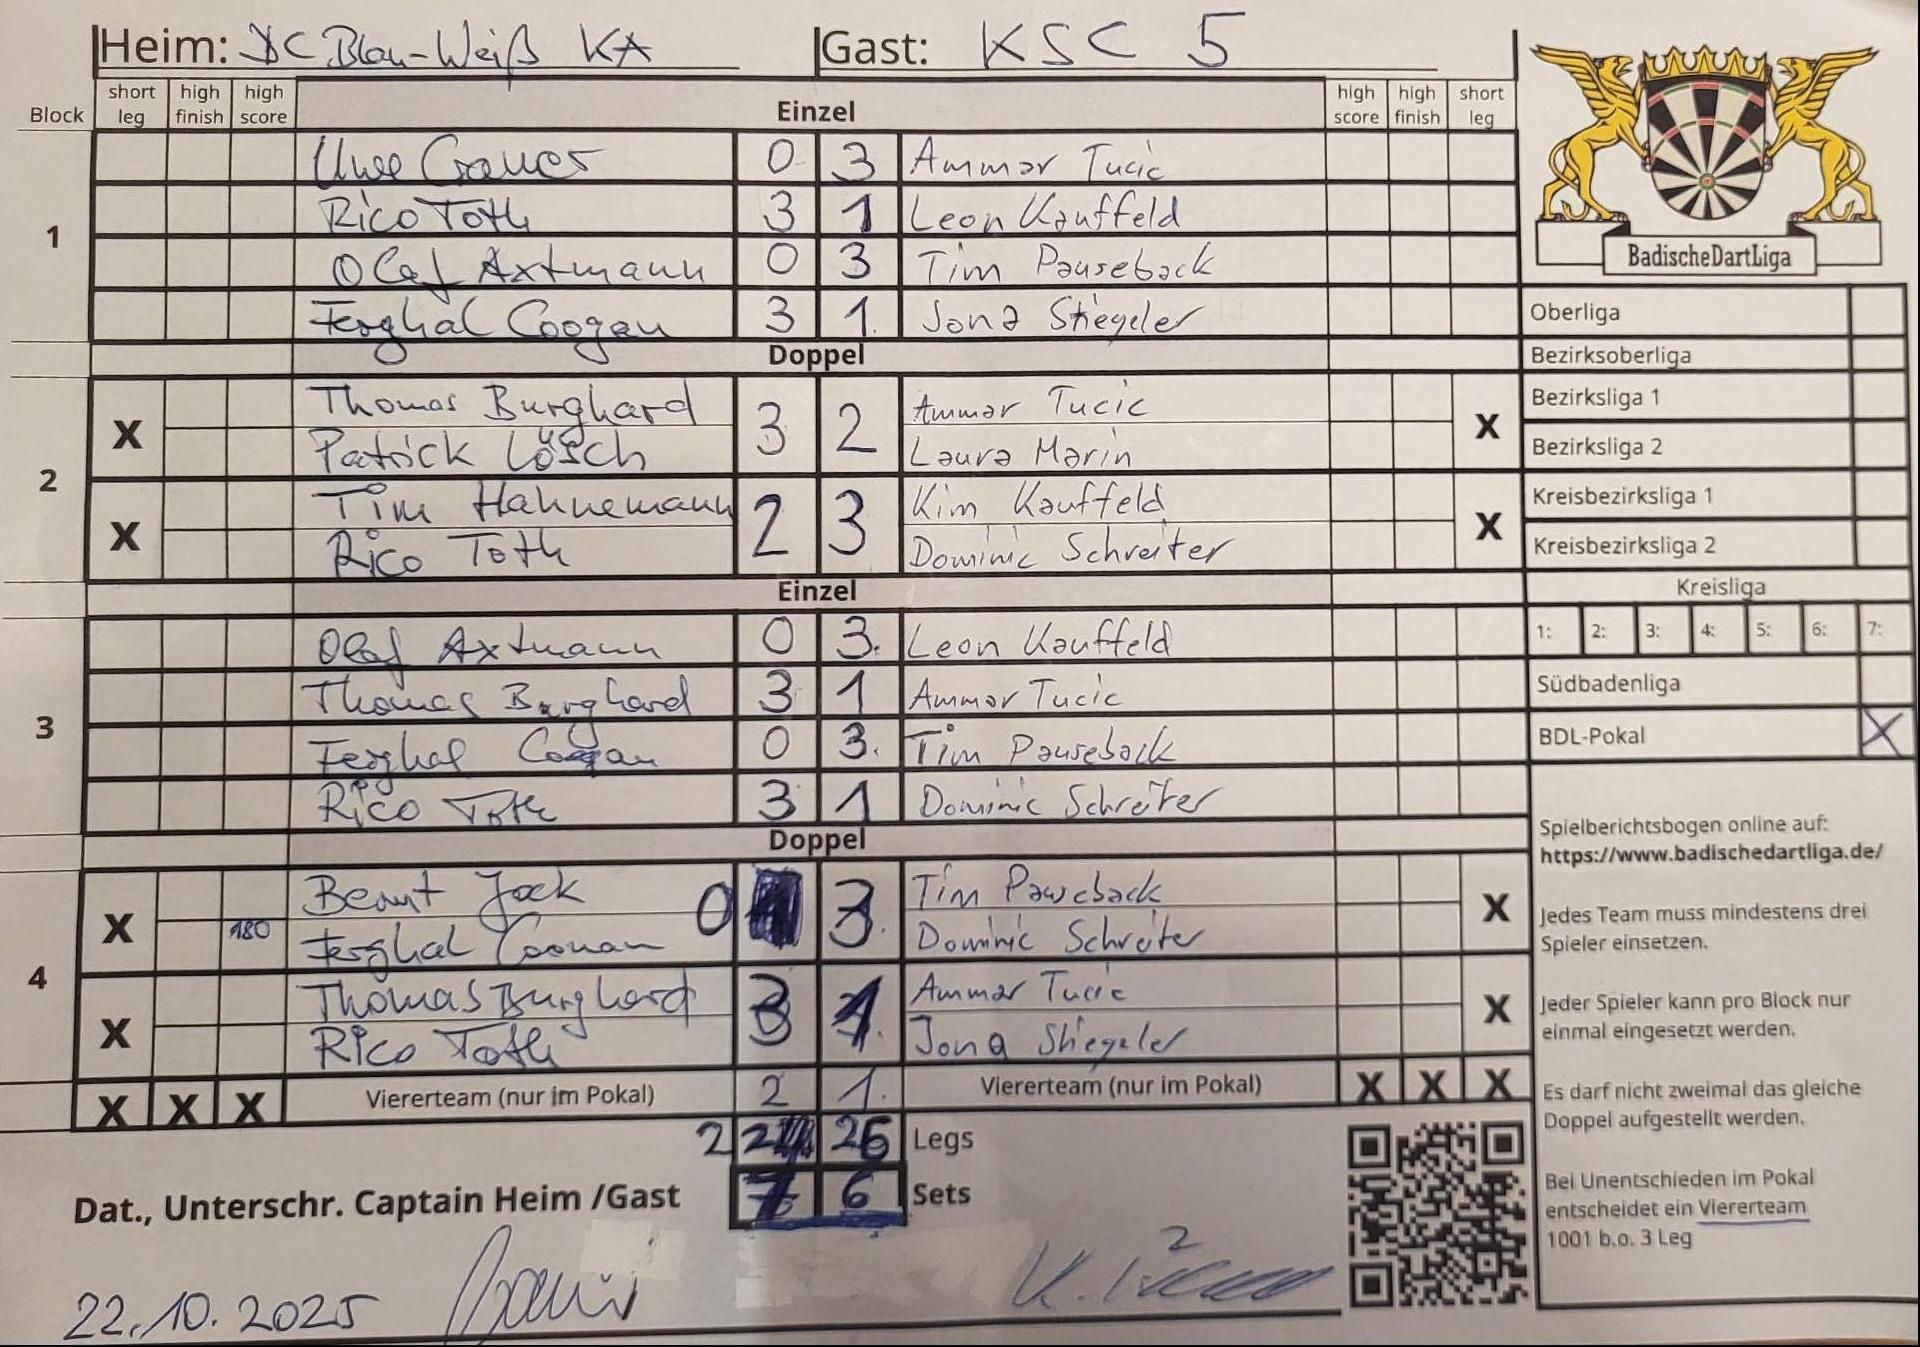 Heim: DC Blau-Weiß KA Gast: KSC 5
Block short leg high finish high score Einzel high score high finish short leg
1
Uwe 0 3 Ammar Tucic
Rico Toth 3 1 Leon Kauffeld
Olaf Axtmann 0 3 Tim Pauseback
Ferghal Coogan 3 1. Jona Stiegeler
Doppel
2
X Thomas Burghard 3 2 Ammar Tucic X
Patrick Lösch Laura Marin
X Tim Hahnemann 2 3 Kim Kauffeld X
Rico Toth Dominic Schreiter
Einzel
3
Olaf Axtmann 0 3. Leon Kauffeld
Thomas Burghard 3 1 Ammar Tucic
Ferghal Coogan 0 3. Tim Pauseback
Rico Toth 3 1 Dominic Schreiter
Doppel
4
X Jock 0 3. Tim Pauseback X
180 Ferghal Dominic Schreiter
X Thomas Burghard 3 1. Ammar Tucic X
Rico Toth Jona Stiegeler
X X X Viererteam (nur im Pokal) 2 1. Viererteam (nur im Pokal) X X X
22 26 Legs
Dat., Unterschr. Captain Heim /Gast 7 6 Sets
22.10.2025
BadischeDartLiga
Oberliga
Bezirksoberliga
Bezirksliga 1
Bezirksliga 2
Kreisbezirksliga 1
Kreisbezirksliga 2
Kreisliga
1: 2: 3: 4: 5: 6: 7:
Südbadenliga
BDL-Pokal X
Spielberichtsbogen online auf:
https://www.badischedartliga.de/
Jedes Team muss mindestens drei
Spieler einsetzen.
Jeder Spieler kann pro Block nur
einmal eingesetzt werden.
Es darf nicht zweimal das gleiche
Doppel aufgestellt werden.
Bei Unentschieden im Pokal
entscheidet ein Viererteam
1001 b.o. 3 Leg